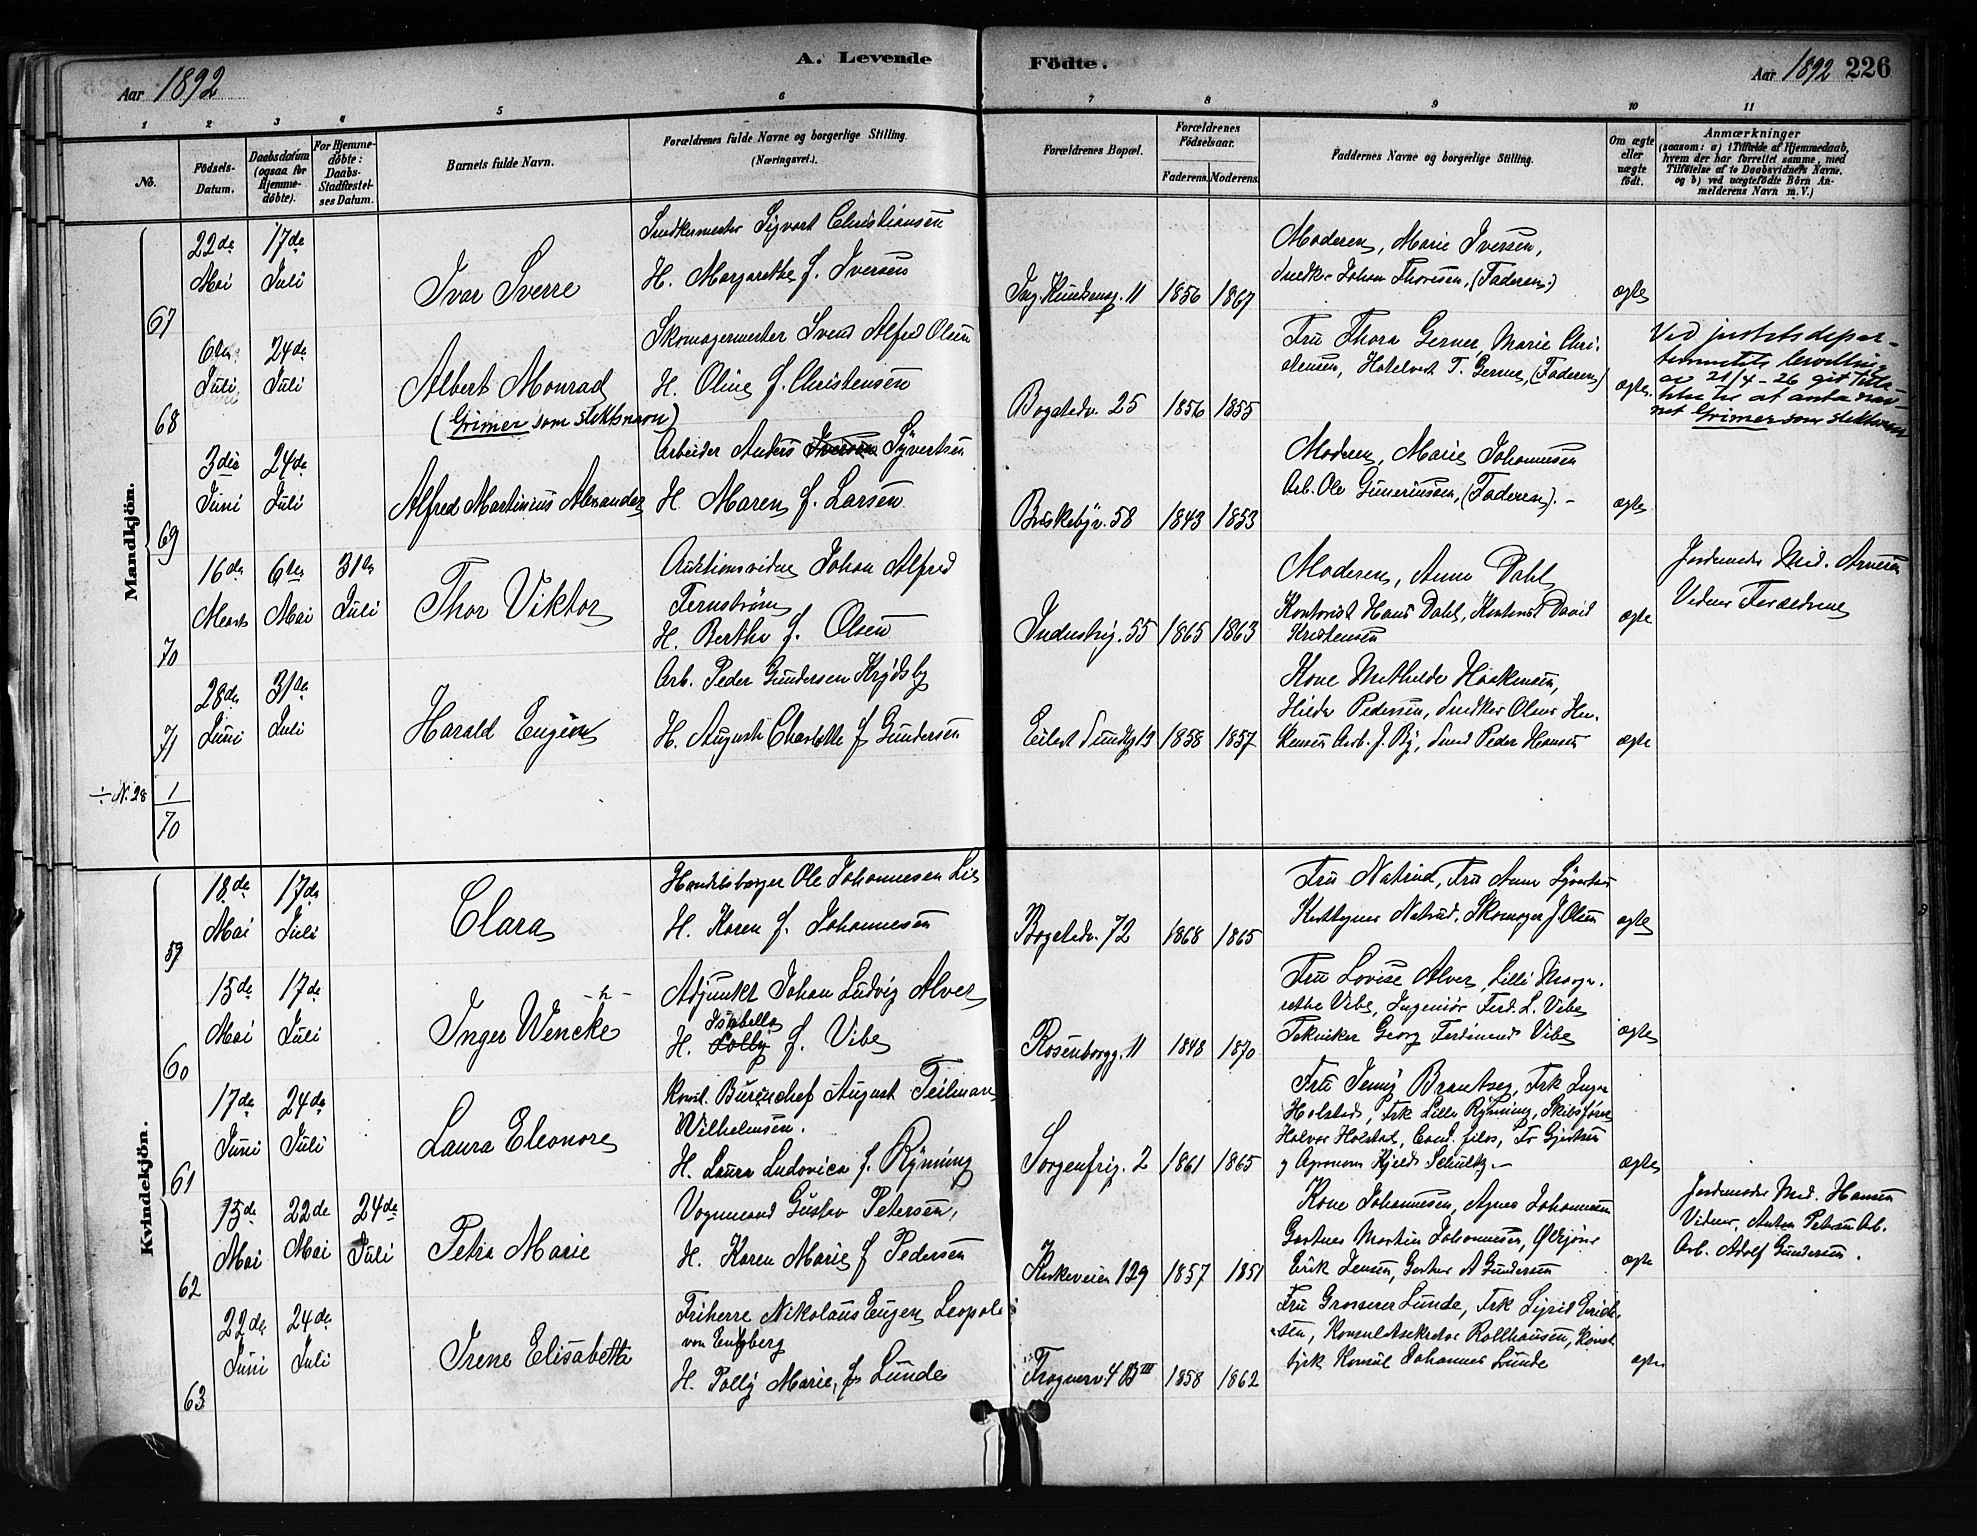 Aar 1892
A. Levende
Födte.
Aar 1892 226
1 2 3 4 5 6 7 8 9 10 11
No.
Födsels-Datum.
Daabsdatum (ogsaa for Hjemme-døbte).
For Hjemme-døbte: Daabs-Stadfæstel-ses Datum.
Barnets fulde Navn.
Forældrenes fulde Navne og borgerlige Stilling.
(Næringsvei.)
Forældrenes Bopæl.
Forældrenes Födselsaar.
Faderens. Moderens.
Faddernes Navne og borgerlige Stilling.
Om ægte eller uægte födt.
Anmærkninger
(saasom: a) i Tilfælde af Hjemmedaab,
hvem der har forrettet samme, med
Tilføielse af to Daabsvidners Navne,
og b) ved uægtefödte Börn An-
melderens Navn m. V.)
Mandkjön.
67
22de Mai
17de Juli
Ivar Sverre
Snedkermester Sigvart Christiansen
H. Margarethe f. Iversen
11
1856 1867
Moderen, Marie Iversen,
Snedker Johan Thoresen, (Faderen.)
ægte
68
6te Juli
24de Juli
Albert Monrad
(Grimer som slektsnavn)
Skomagermester Svend Alfred Olsen
H. Oline f. Christensen
Bogstadv. 25
1856 1855
Fru Thora Gerner, Marie Chri-
stensen, Hotelvert T. Gerner, (Faderen)
ægte.
Ved justitsdepar-
tementets bevilling
av 21/4-26 git tilla-
telse til at anta nav-
net Grimer som slektsnavn
69
3die Juni
24de Juli
Alfred Martinius Alexander
Arbeider Anders Iversen Syvertsen
H. Maren f. Larsen
Briskebyv. 58
1843 1853
Moderen, Marie Johannesen
Arb. Ole Guneriussen, (Faderen). -
ægte
70
16de Marts
6te Mai
31te Juli
Thor Viktor
Auktionsvidne Johan Alfred
Fernström
H. Berthe f. Olsen
Industrig. 55
1865 1863
Moderen, Anne Dahl
Kontorist Hans Dahl, Kontorist David
Kristensen
ægte
Jordemoder Mad. Arnesen
Vidner Forældrene
71
28de Juni
31te Juli
Harald Eugen
Arb. Peder Gundersen Krydsby
H. Augusta Charlotte f Gundersen
Eilert Sundtg
1858 1857
Kone Mathilde Haakensen,
Hilda Pedersen, Snedker Olaus Ha-
kensen Arb. J. By, Svend Peder Hansen
ægte
÷ N. 28
1
70
Kvindekjön.
59
18de Mai
17de Juli
Clara
Handelsborger Ole Johannesen Lie
H. Karen f. Johannesen
Bogstadv. 72
1868 1865
Fru Natrud, Fru Anna Syvertsen
Natrud, Skomager J. Olsen
ægte
60
15de Mai
17de Juli
- h -
Inger Wencke
Adjunkt Johan Ludvig Alver
Isabella
H. Lolly f. Vibe
Rosenborgg. 11
1848 1870
Fru Lovise Alver, Lilli Marga-
rethe Vibe, Ingeniør Ferd. L. Vibe
Tekniker Georg Ferdinand Vibe
ægte
61
17de Juni
24de Juli
Laura Eleonore
Konst. Bureauchef August Teilman
Wilhelmsen.
H. Laura Ludovica f. Rynning
Sorgenfrig. 2
1861 1865
Fru Jenny Brantseg, Frk Inga
Holstad, Frk Lilla Rynning, Skibsfører
Halvor Holstad, Cand. filos, Fr Gjertsen
og Agronom Kjeld Schultz.-
ægte
62
15de Mai
22de Mai
24de Juli
Petra Marie
Vognmand Gustav Petersen,
H. Karen Marie f Pedersen
Kirkeveien 129
1857 1851
Kone Johannesen, Agnes Johannesen
Gartner Martin Johannesen,
Erik Jensen, Gartner A Gundersen
ægte
Jordemoder Mad. Hansen
Vidner, Anton Petersen Arb.
Arb. Adolf Gundersen.
63
22de Juni
24de Juli
Irene Elisabeth
Friherre Nikolaus Eugen Leopold
von Enzberg
H. Polly Marie, f. Lunde
Frognerv. 4 B III
1858 1862
Fru Grosserer Lunde, Frk Sigrid Erich-
sen, Konsulatsekretær Rollhausen,
tyrk Konsul Johannes Lunde
ægte